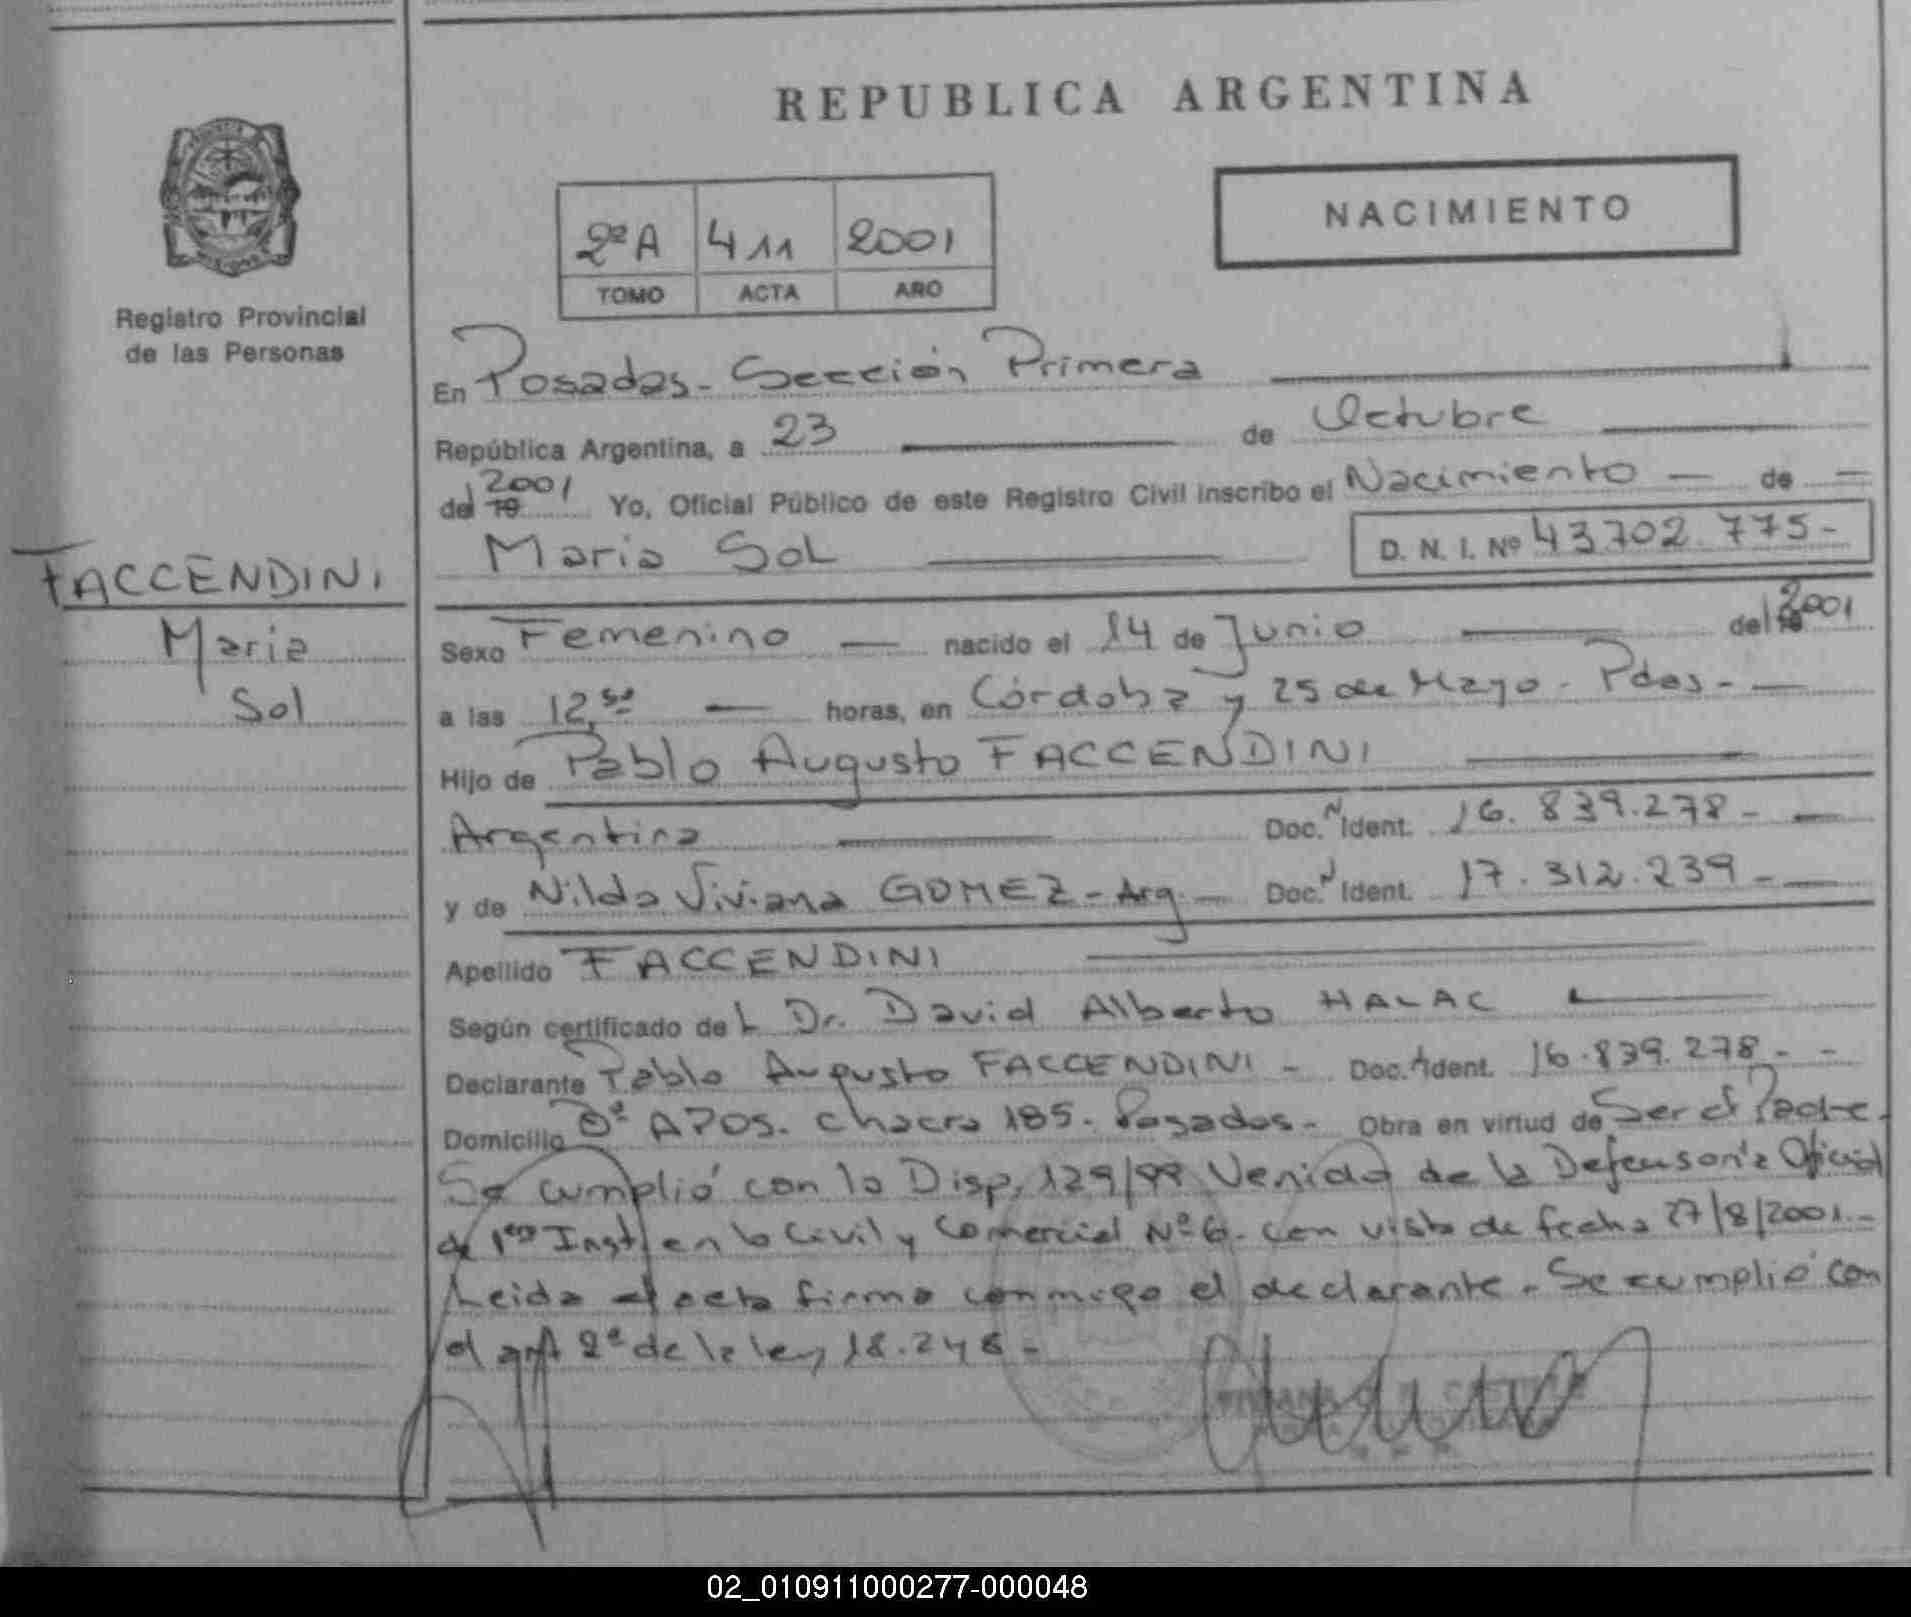 REPUBLICA ARGENTINA
NACIMIENTO
2ºA 411 2001
TOMO ACTA AÑO
Registro Provincial
de las Personas
FACCENDINI
Maria
Sol
En Posadas - Sección Primera
República Argentina, a 23 de Octubre
del 19 2001 Yo, Oficial Público de este Registro Civil inscribo el Nacimiento de
Maria Sol D. N. I. Nº 43702.775-
Sexo Femenino nacido el 14 de Junio del 19 2001
a las 12,50 horas, en Córdoba y 25 de Mayo - Pdas -
Hijo de Pablo Augusto FACCENDINI
Argentina Doc. N Ident. 16.839.278-
y de Nilda Viviana GOMEZ - Arg. Doc. N Ident. 17.312.239-
Apellido FACCENDINI
Según certificado del Dr. David Alberto HALAC
Declarante Pablo Augusto FACCENDINI - Doc. Ident. 16.839.278-
Domicilio Bº APOS. Chacra 185. Posadas - Obra en virtud de Ser el Padre.
Se cumplió con la Disp. 129/99 Venida de la Defensoría Oficial
de 1era Inst. en lo Civil y Comercial Nº 6. con vista de fecha 27/8/2001.-
Leida el acta firma conmigo el declarante. Se cumplió con
el art 2º de la ley 18.248 -
02_010911000277-000048